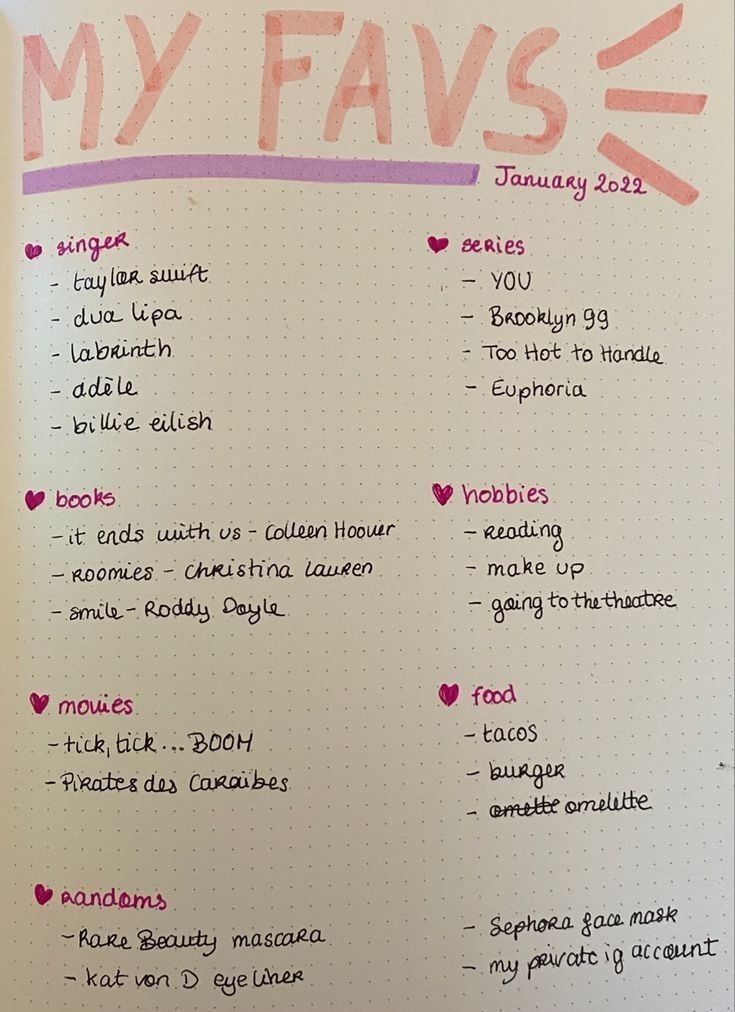 MY FAVS
January 2022
singer
- taylor swift
- dua lipa
- labrinth
- adèle
- billie eilish
series
- YOU
- Brooklyn 99
- Too Hot to Handle
- Euphoria
books
- it ends with us - Colleen Hoover
- Roomies - Christina Lauren
- smile - Roddy Doyle
hobbies
- reading
- make up
- going to the theatre
movies
- tick, tick... BOOM
- Pirates des Caraïbes
food
- tacos
- burger
- omette omelette
randoms
- Rare Beauty mascara
- Kat von D eye liner
- Sephora face mask
- my private ig account